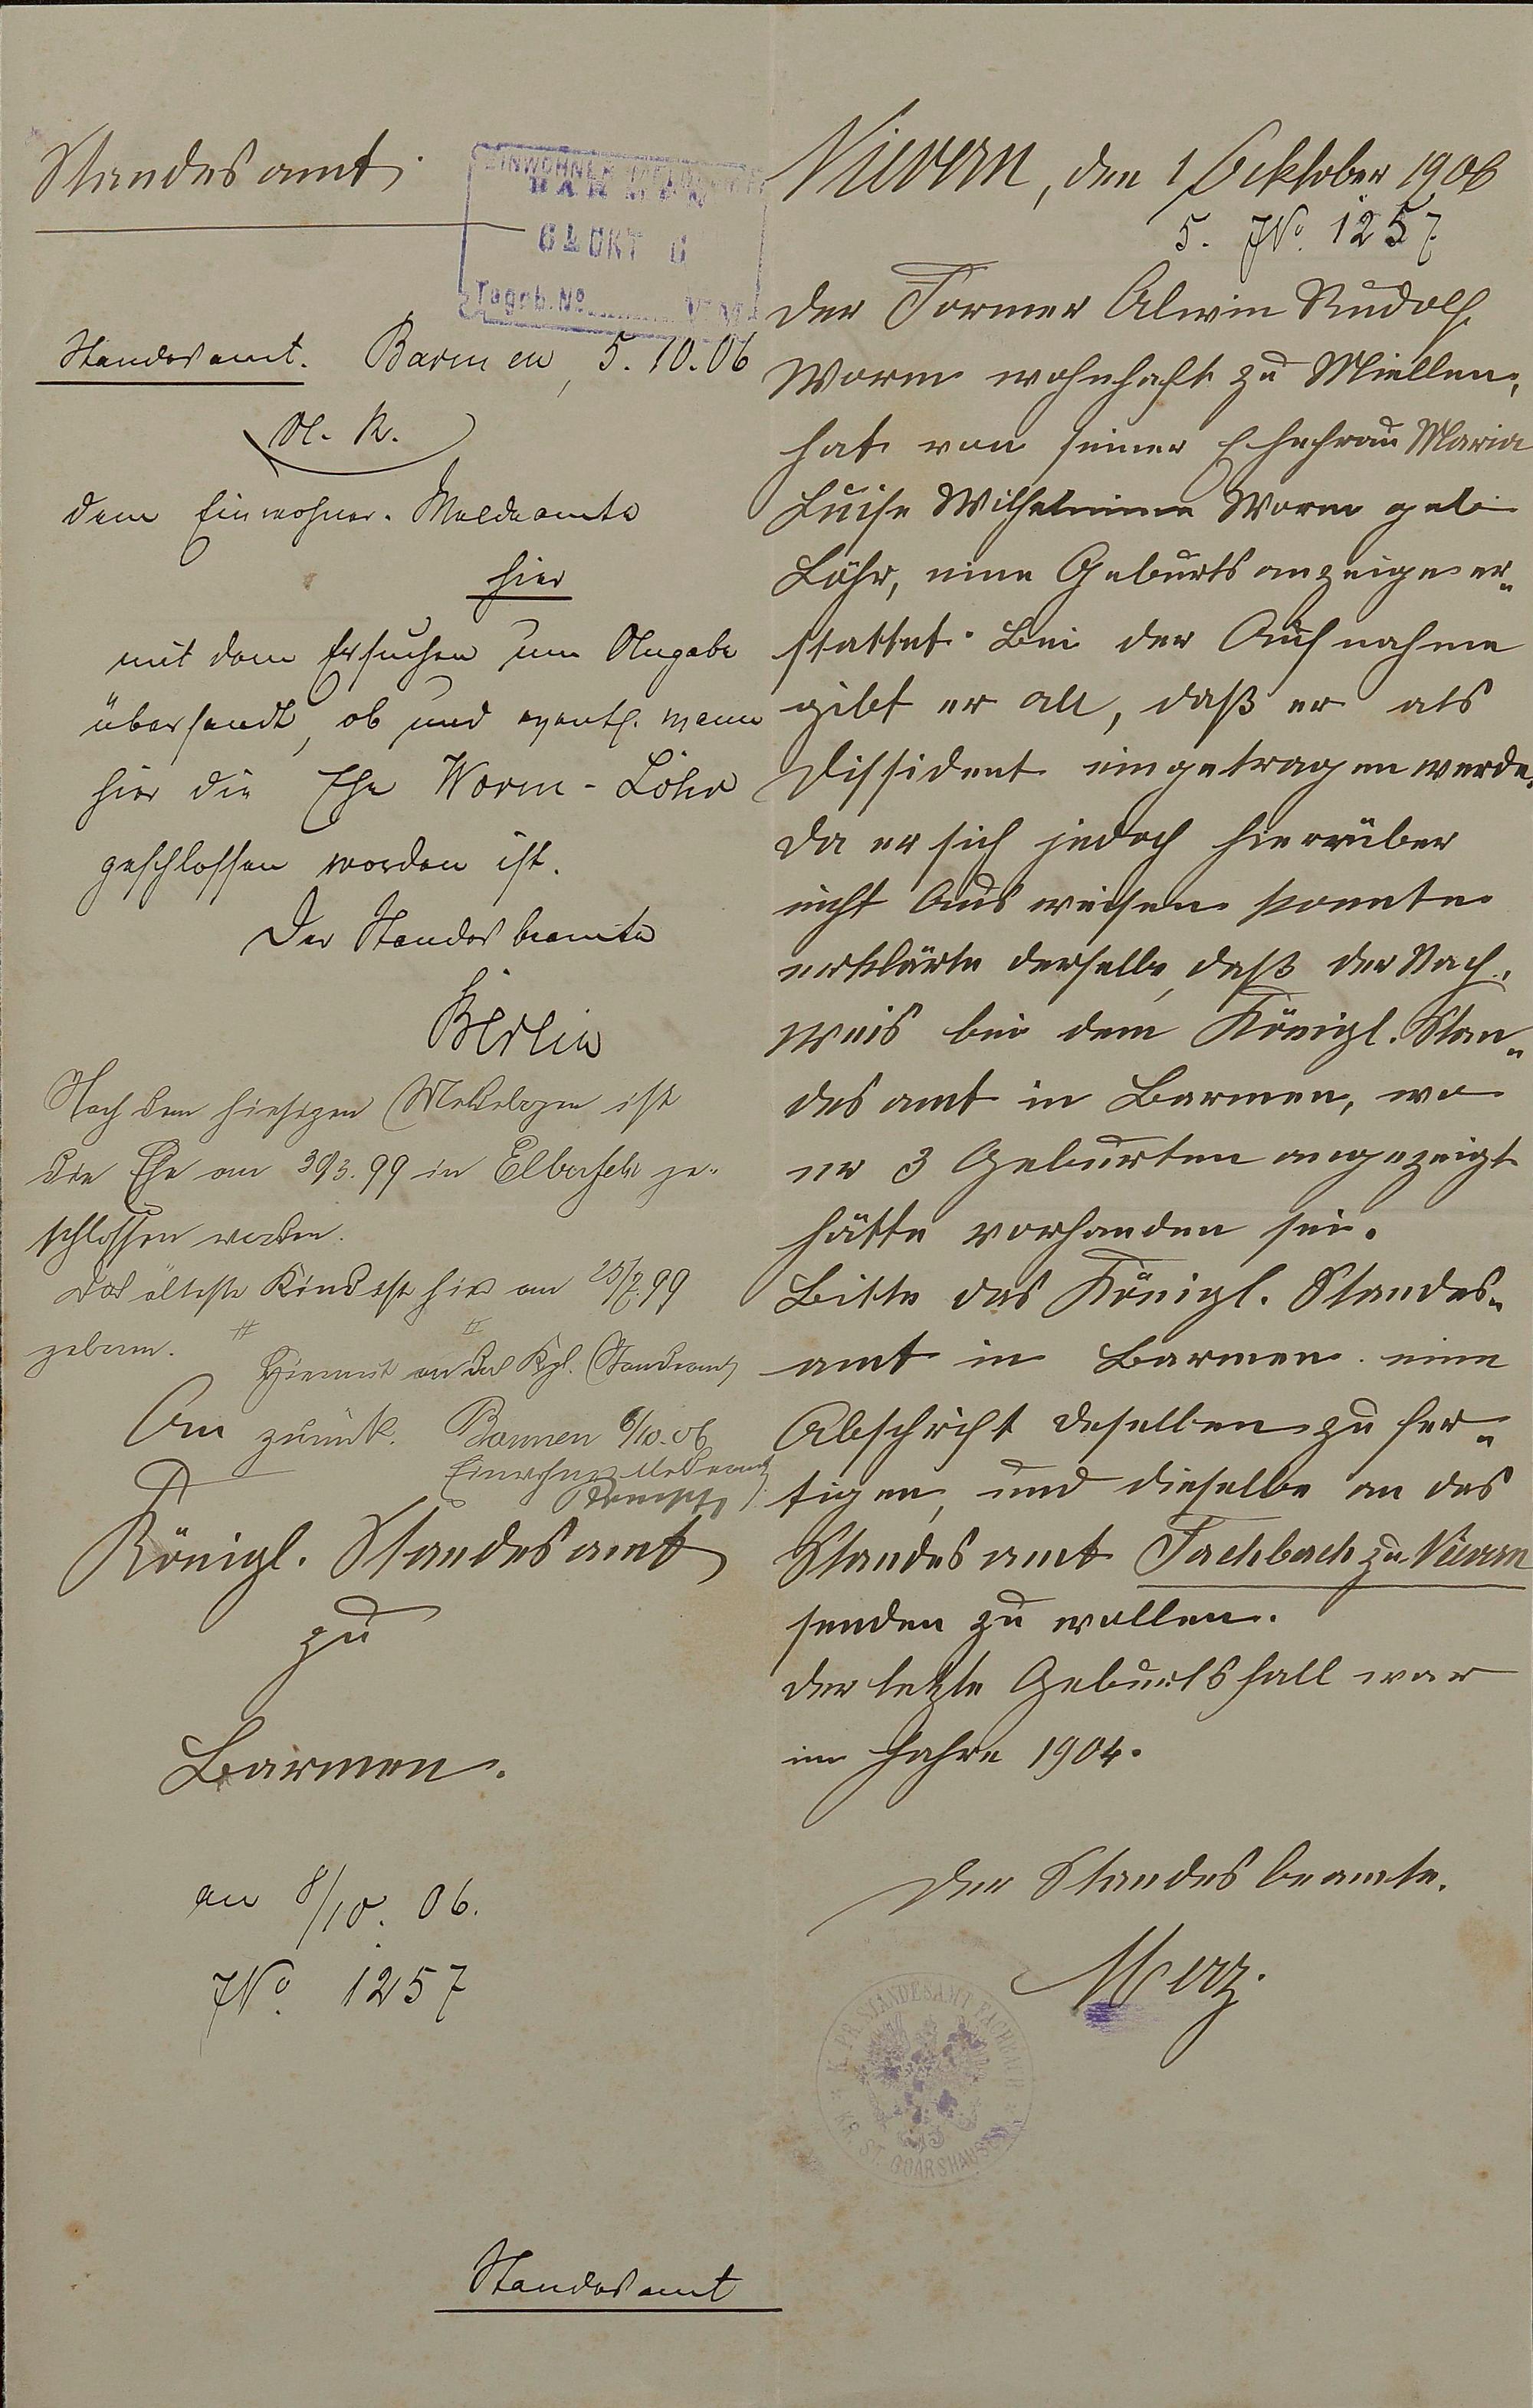 Standesamt.
EINWOHNER
BARMEN
6 * OKT 0
Tageb. No
Standesamt. Barmen, 5.10.06
U. R.
dem Einwohner-Meldeamte
hier
mit dem Ersuchen um Angabe
übersandt, ob und eventl. wann
hier die Ehe Worm-Löhr
geschlossen worden ist.
Der Standesbeamte
Nach den hiesigen Meldebogen ist
die Ehe am 30/3.99 in Elberfeld ge-
schlossen worden.
Das älteste Kind ist hier am 25/7.99
geboren.
Hiermit an das Kgl. Standesamt
zurück. Barmen 6/10.06
Einwohnermeldeamt
An
Königl. Standesamt
zu
Barmen.
an 8/10. 06.
JNo. 1257
Standesamt
Nievern, den 1 Ocktober 1906
5. JNo. 1257
Der Former Alwin Rudolf
Worm wohnhaft zu Miellen,
hat von seiner Ehefrau Maria
Luise Wilhelmine Worm geb.
Löhr, eine Geburtsanzeige er-
stattet. Bei der Aufnahme
gibt er an, daß er als
Dissident eingetragen werde.
Da er sich jedoch hierrüber
nicht Ausweisen konnte
erklärte derselbe, daß der Nach-
weis bei dem Königl. Stan-
desamt in Barmen, wo
er 3 Geburten angezeigt
hätte vorhanden sei.
Bitte das Königl. Standes-
amt in Barmen eine
Abschrift deselben zu fer-
tigen, und dieselbe an das
Standesamt Fachbach zu Nievern
senden zu wollen.
Der letzte Geburtsfall war
im Jahre 1904.
Der Standesbeamte.
Merz.
K. PR. STANDESAMT FACHBACH
KR. ST. GOARSHAUSEN